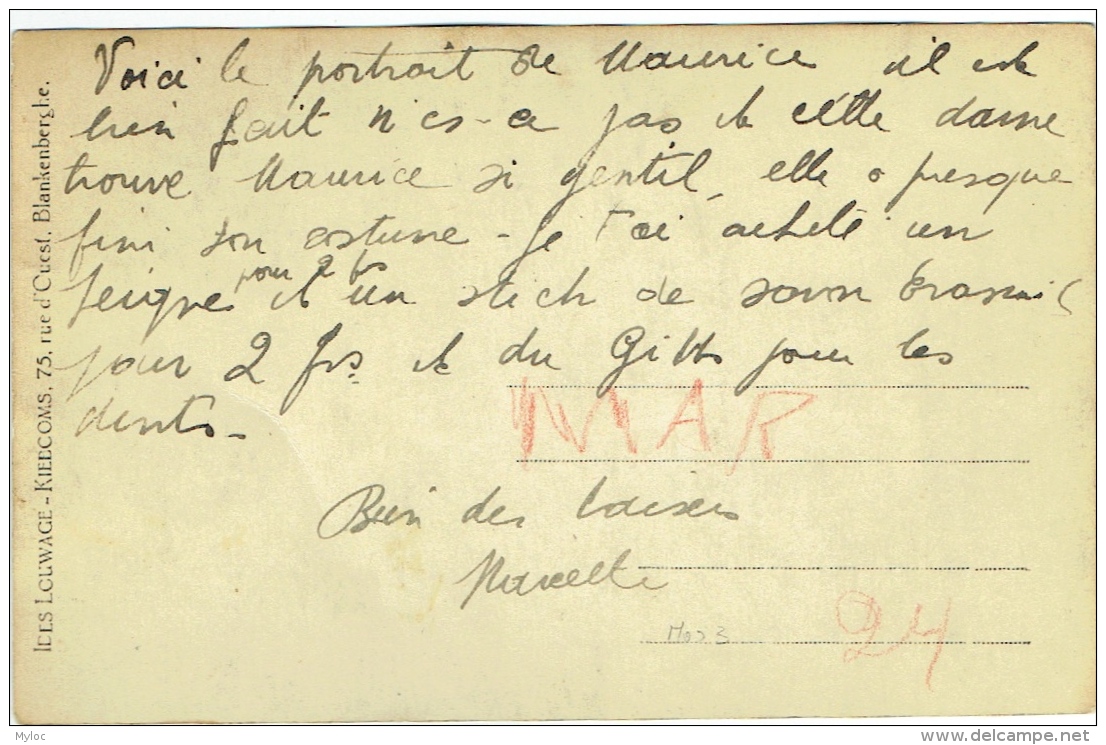 Voici le portrait de Maurice il est
bien fait n'es-ce pas et cette dame
trouve Maurice si gentil, elle a presque
fini son costume - je t'ai acheté un
peigne pour 2 frs et un stick de savon Erasmic
pour 2 frs. et du Gibbs pour les
dents -
MAR
Bien des baisers
Marcelle
24
IDES LOUWAGE - KIEBCOMS, 75, rue d'Ouest, Blankenberghe.
Myloc
delcampe.net